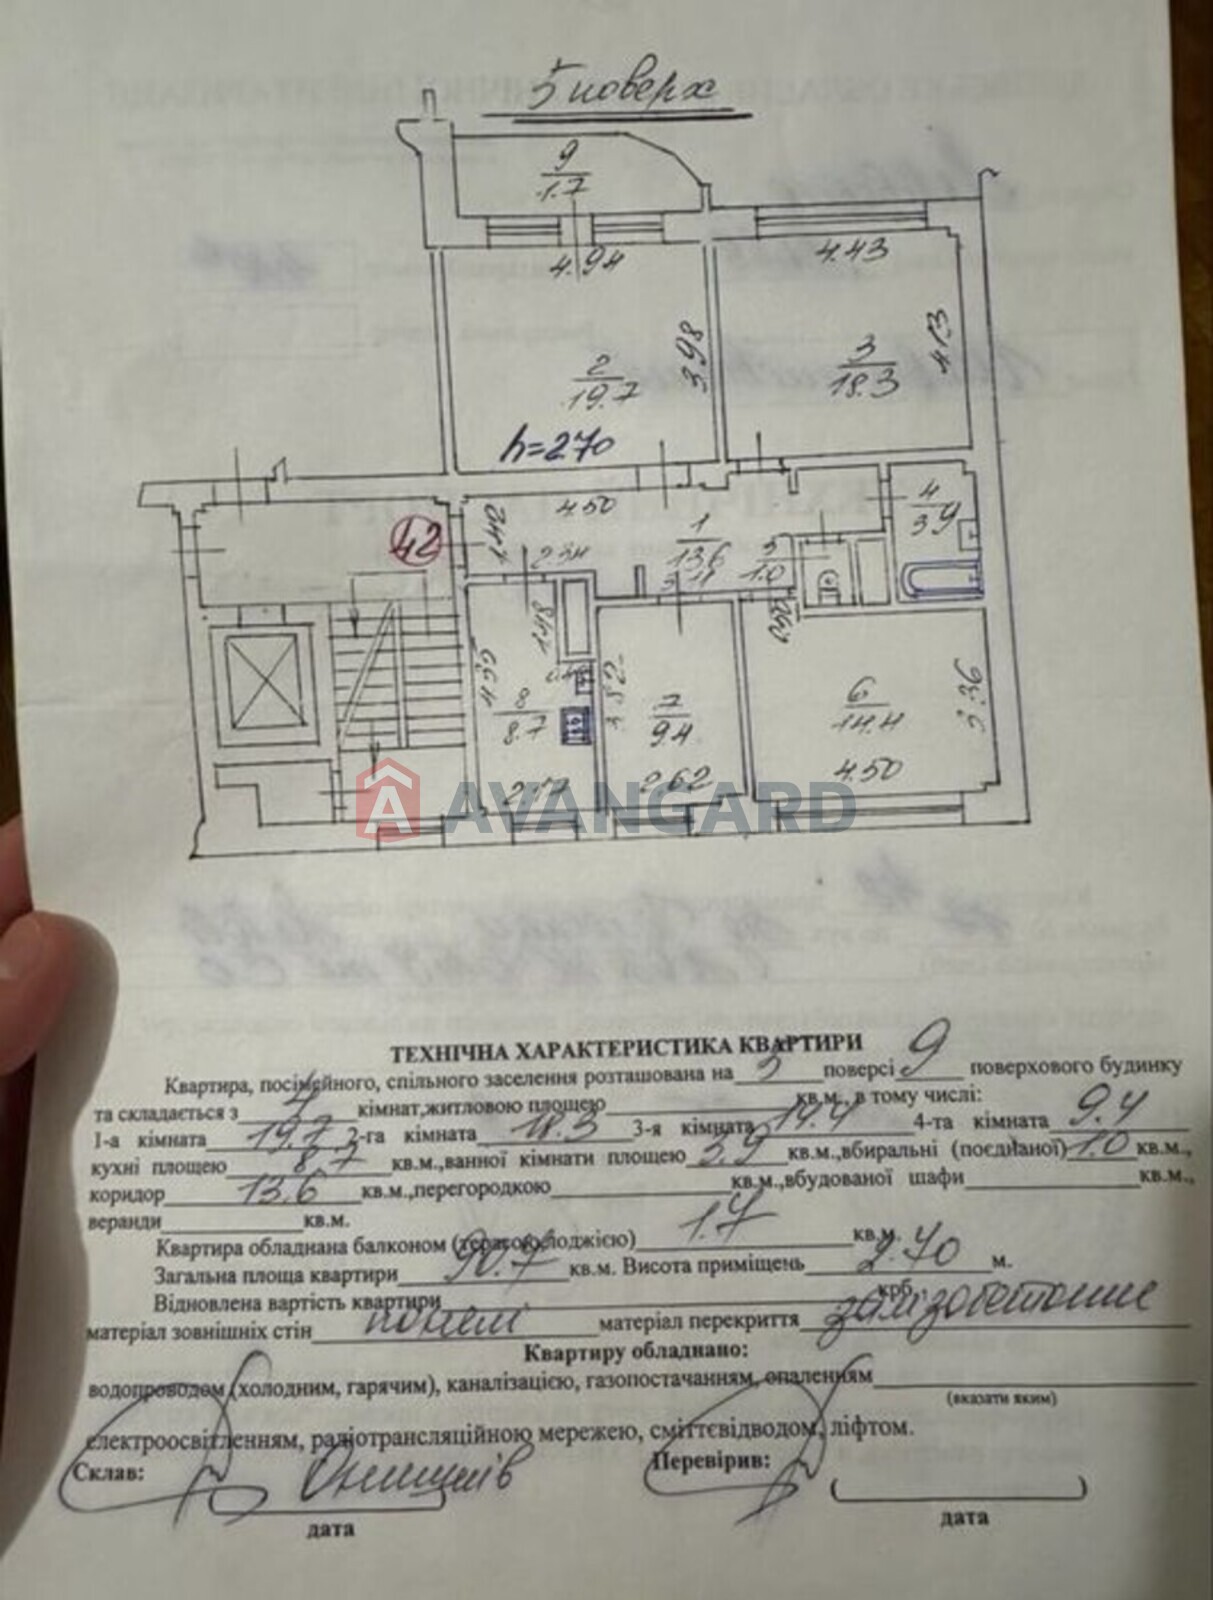 5 поверх
9
1.7
4.94
4.43
3.98
4.13
2
19.7
3
18.3
h=270
4.50
4
3.9
42
1
13.6
2.34
5
1.0
3.11
1.48
4.55
8
8.7
3.52
7
9.4
6
14.4
3.36
2.17
2.62
4.50
AVANGARD
ТЕХНІЧНА ХАРАКТЕРИСТИКА КВАРТИРИ
Квартира, посімейного, спільного заселення розташована на 5 поверсі 9 поверхового будинку
та складається з 4 кімнат,житловою площею кв.м., в тому числі:
1-а кімната 19.7 2-га кімната 18.3 3-я кімната 14.4 4-та кімната 9.4
кухні площею 8.7 кв.м.,ванної кімнати площею 3.9 кв.м.,вбиральні (поєднаної) 1.0 кв.м.,
коридор 13.6 кв.м.,перегородкою кв.м.,вбудованої шафи кв.м.,
веранди кв.м.
Квартира обладнана балконом (терасою,лоджією) 1.7 кв.м.
Загальна площа квартири 90.7 кв.м. Висота приміщень 2.70 м.
Відновлена вартість квартири крб.,
матеріал зовнішніх стін панелі матеріал перекриття залізобетонне
Квартиру обладнано:
водопроводом (холодним, гарячим), каналізацією, газопостачанням, опаленням
(вказати яким)
електроосвітленням, радіотрансляційною мережею, сміттєвідводом, ліфтом.
Склав: Перевірив:
дата дата